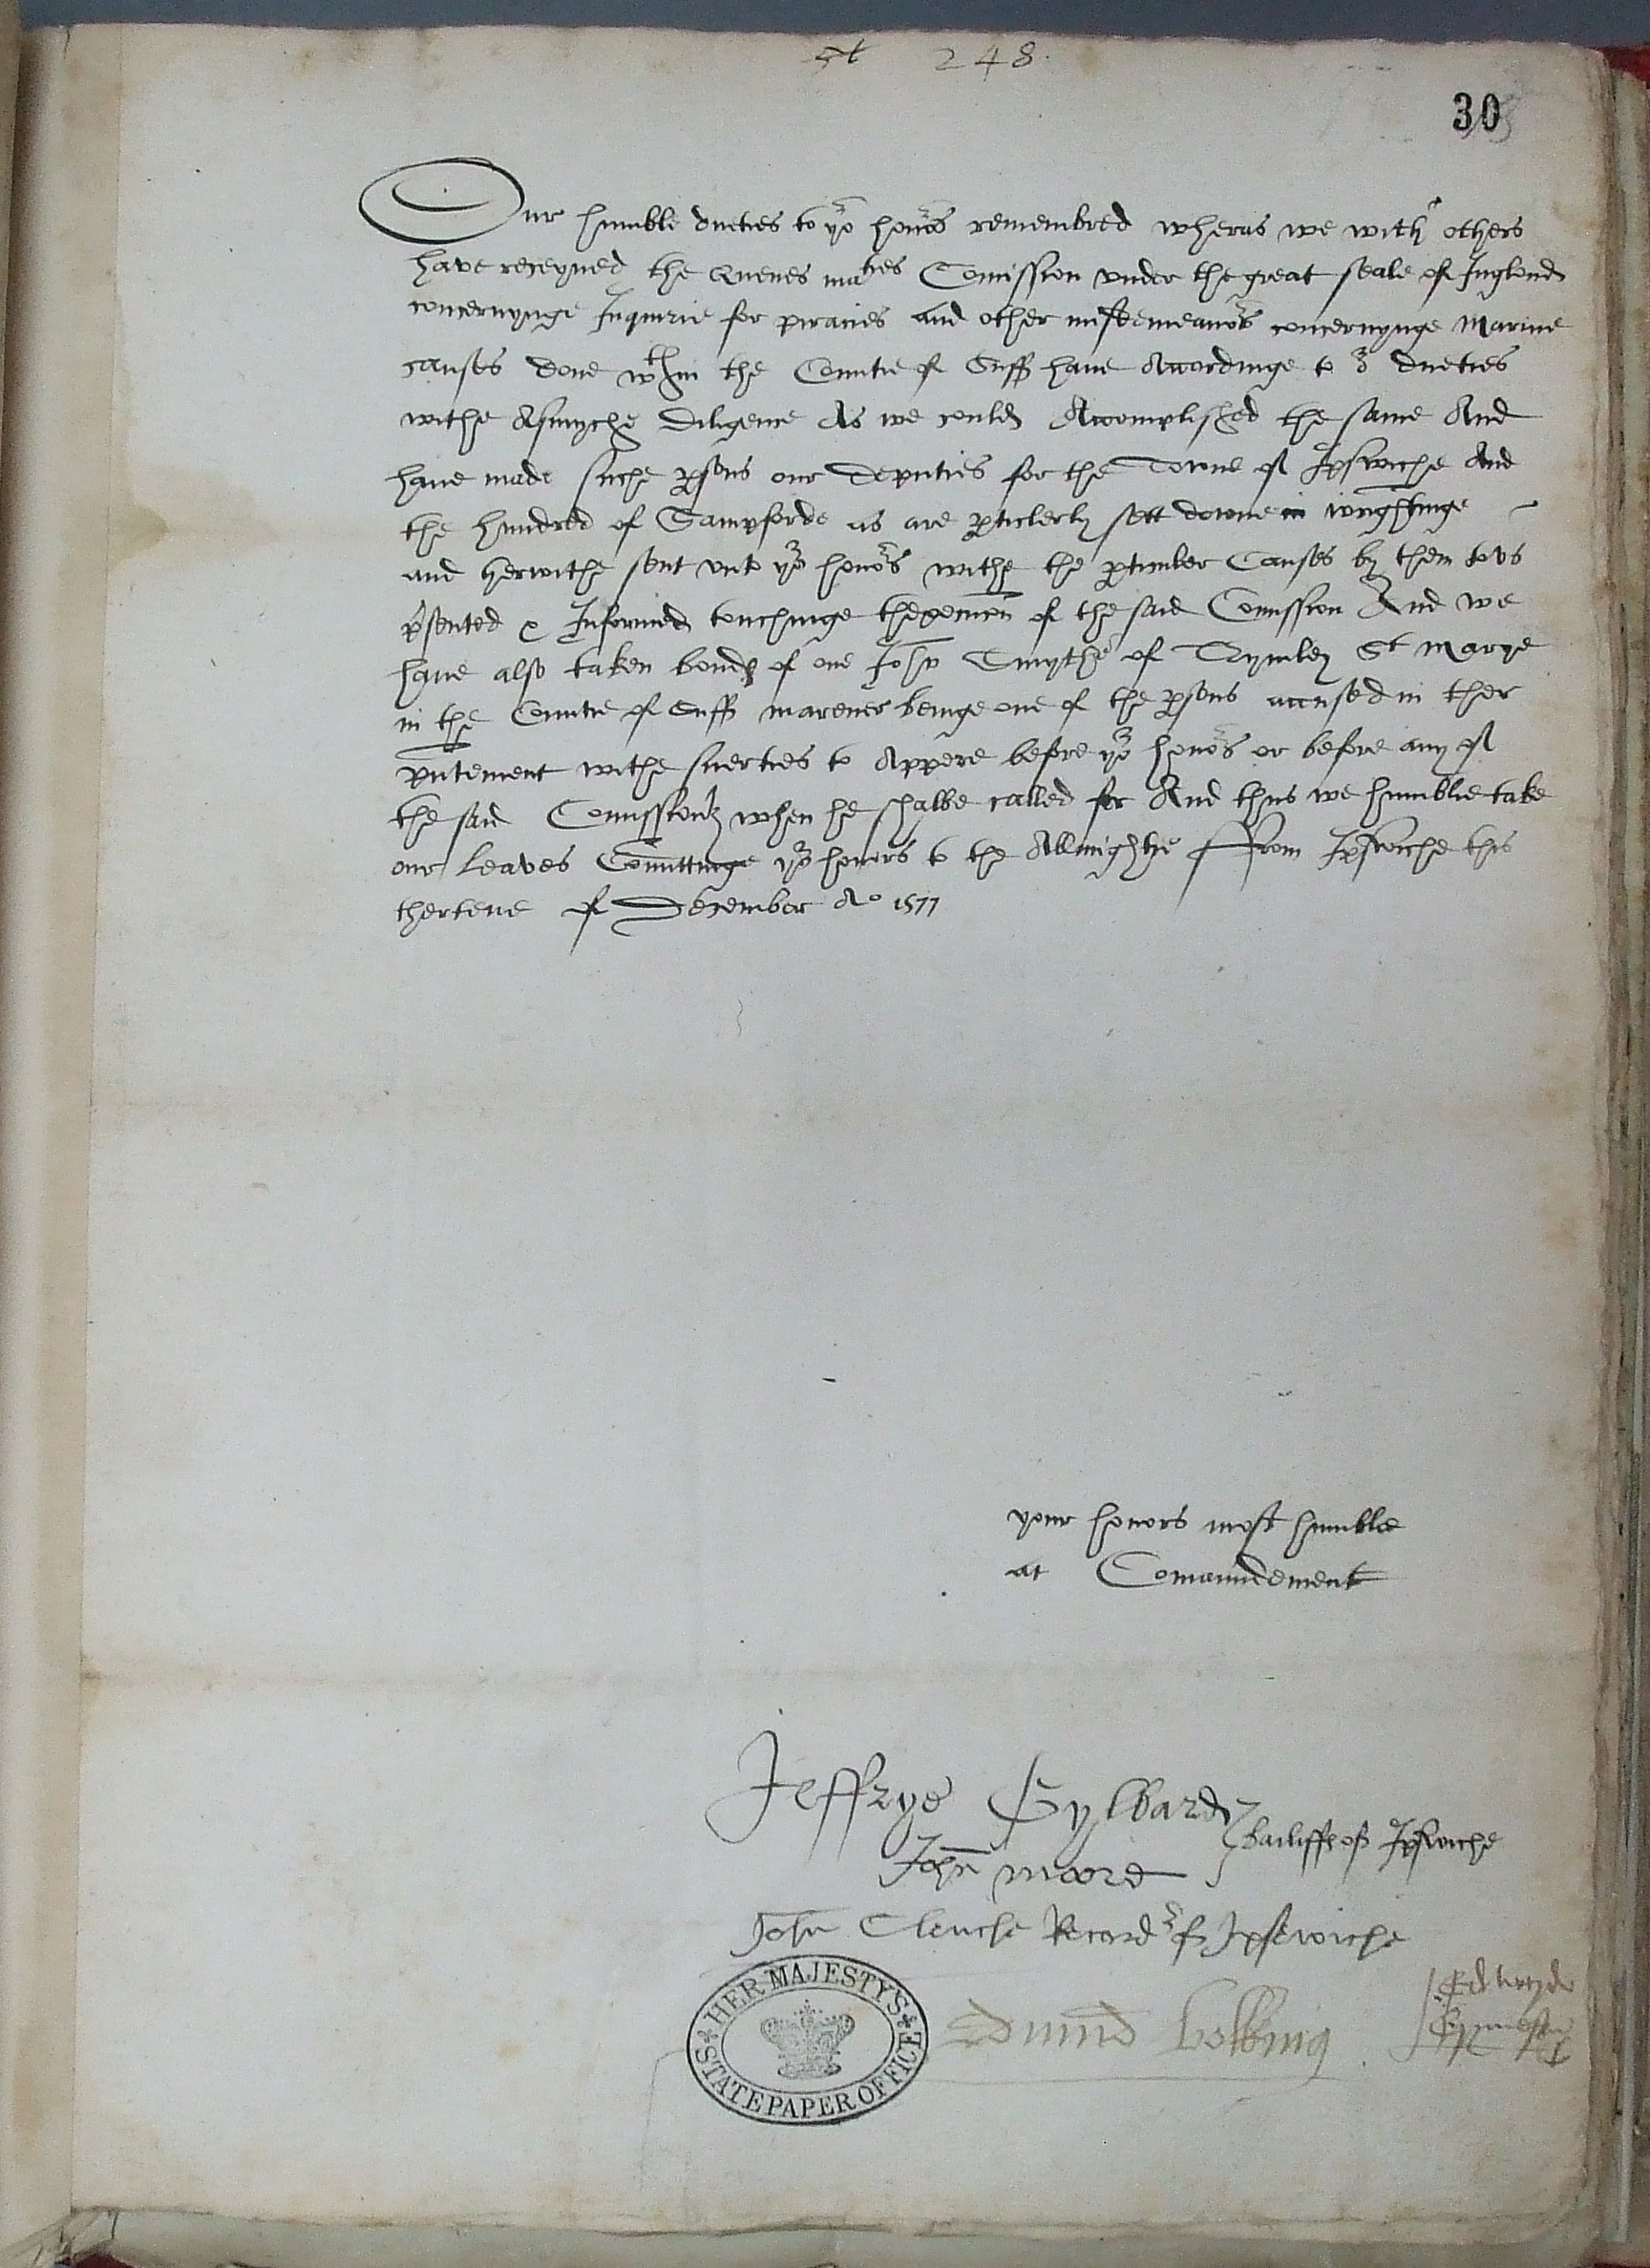 248.
30
Our humble dueties to yor honors remembred wheras we with others
have receyued the Quenes maties Comission vnder the great seale of Inglond
concernynge Inquirie for piracies and other misdemeanors concernynge Marine
causes done wthin the Countie of Suff haue Accordinge to or dueties
withe Asmyche Diligence As we could Accomplished the same And
haue made suche psons our Deputies for the Towne of Ipswiche And
the hundred of Sampforde as are pticlerly sett downe in wrightinge
and herwithe sent vnto yor honors withe the pticuler Causes by them to vs
psented & Informed touchinge the of the said Comission And we
haue also taken bonds of one John Smythe of Trymley St Marye
in the Countie of Suff marener beinge one of the psons accused in ther
pntement withe suerties to Appere before yor honors or before any of
the said Comissionrs when he shalbe called for And thus we humblie take
our leaves Comittinge yor honors to the Allmightye ffrom Ipswiche this
thertene of December Ao 1577
your honors most humble
at Comaundement
Jeffrye Gylbard
John moore
bailiffe of Ipswiche
John Clenche Record of Ipsewiche
Edmund
HER MAJESTYS
STATE PAPER OFFICE